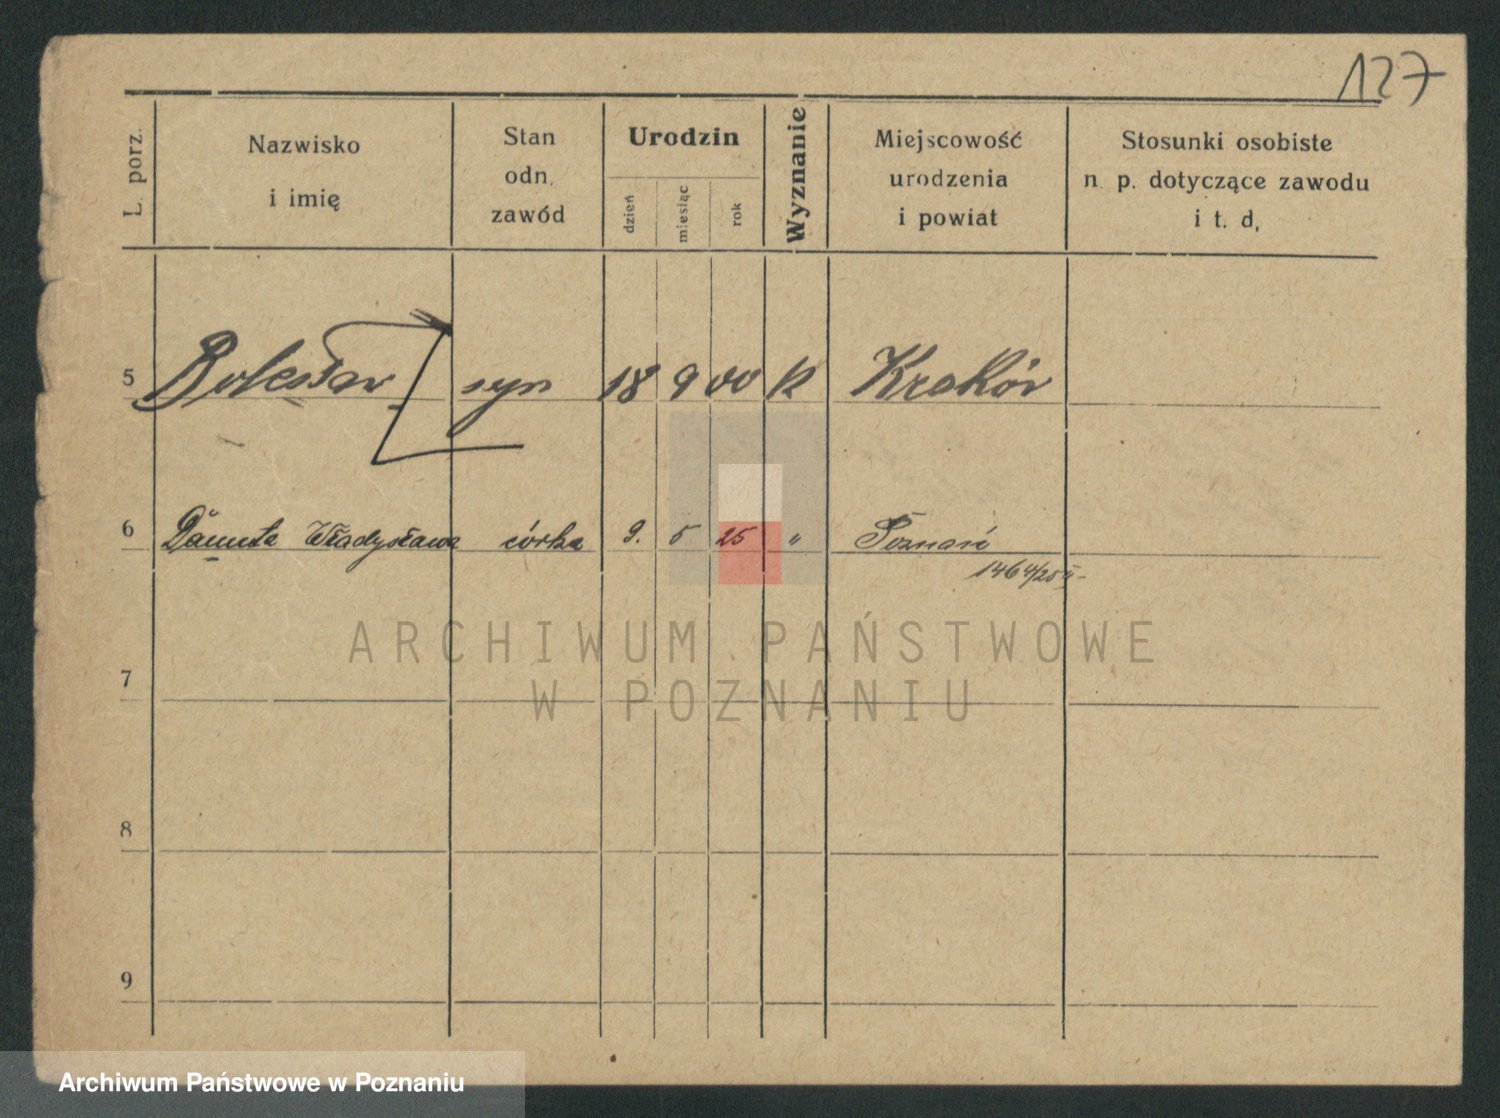 127
L. porz.
Nazwisko
i imię
Stan
odn.
zawód
Urodzin
dzień
miesiąc
rok
Wyznanie
Miejscowość
urodzenia
i powiat
Stosunki osobiste
n. p. dotyczące zawodu
i t. d.
5 Bolesław syn 18 9 00 k Kraków
6 Danuta Władysława córka 9. 5 25 " Poznań
1464/25 II
7
8
9
ARCHIWUM PAŃSTWOWE
W POZNANIU
Archiwum Państwowe w Poznaniu